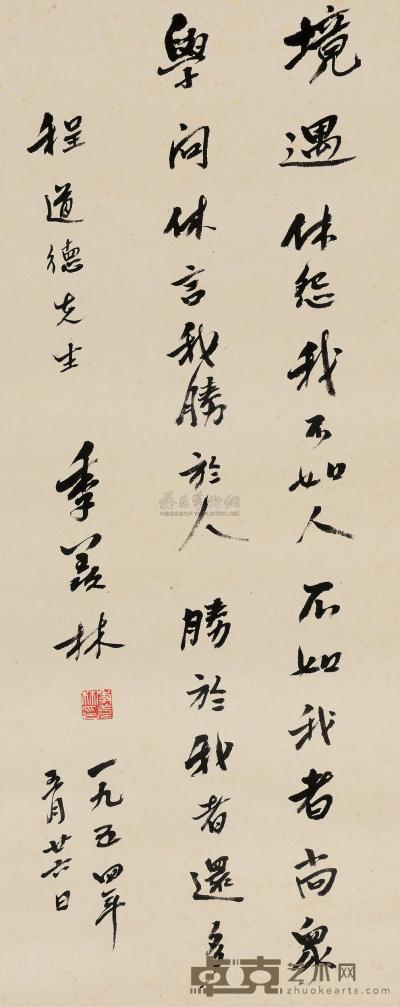 境遇休怨我不如人 不如我者尚眾
學问休言我勝於人 勝於我者還多
程道德先生
季羡林
一九五四年
五月廿六日
卓克艺术网
zhuokearts.com